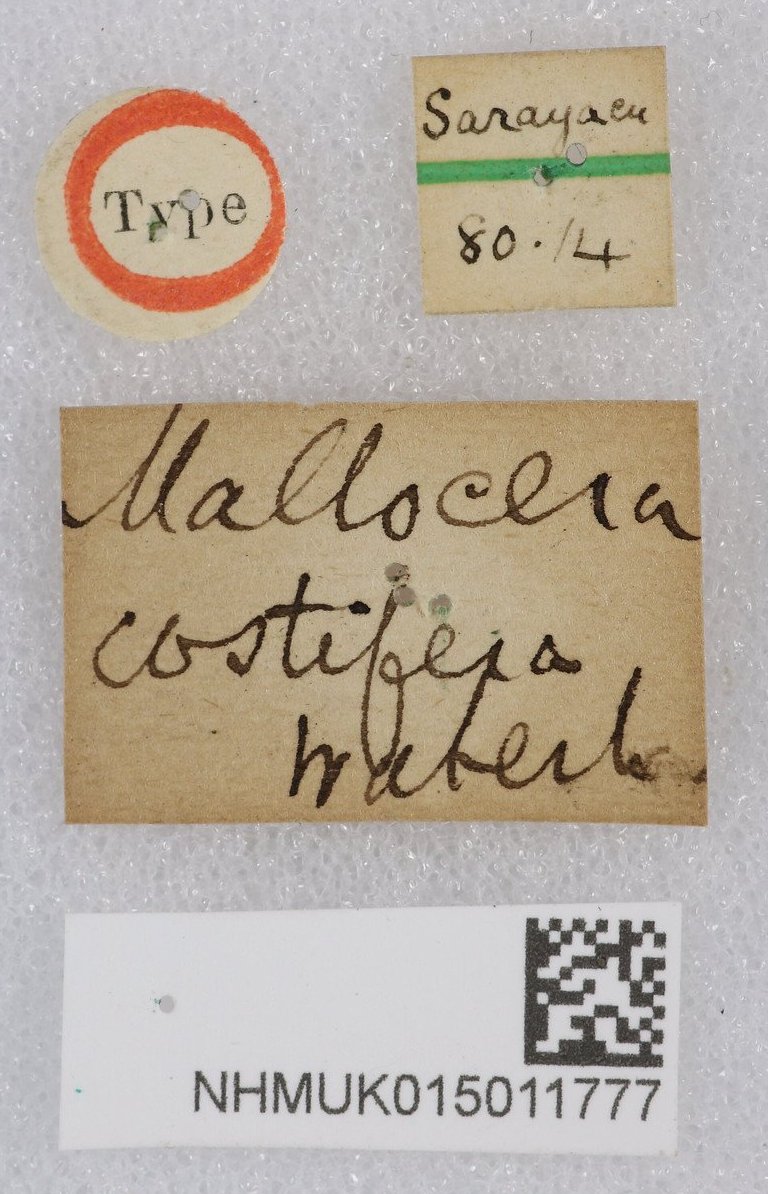 Type
Sarayacu
80.14
Mallocera
costifera
Waterh
NHMUK015011777